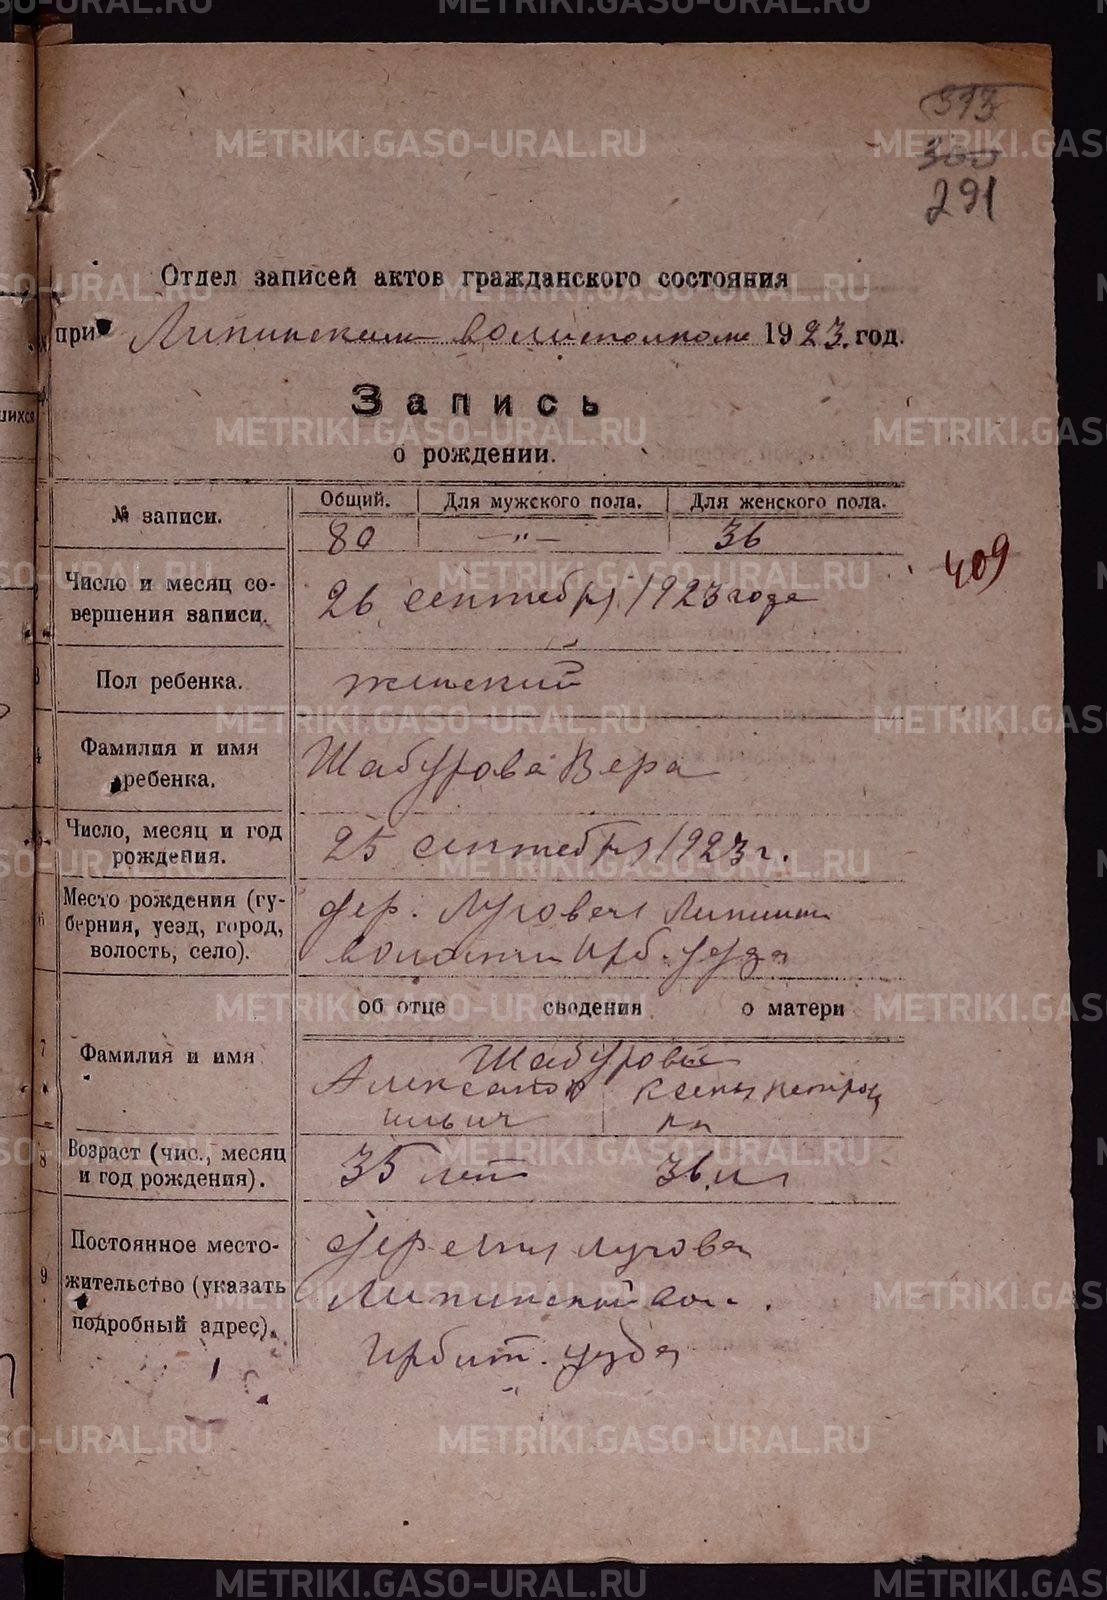 393
300
291
Отдел записей актов гражданского состояния
при Липинском волисполкоме 1923. год.
Запись
о рождении.
№ записи.
Общий. Для мужского пола. Для женского пола.
80 —"— 36
409
Число и месяц со-
вершения записи.
26 сентября 1923 года
3 Пол ребенка.
женский
4 Фамилия и имя
ребенка.
Шабурова Вера
5 Число, месяц и год
рождения.
25 сентября 1923 г.
6 Место рождения (гу-
берния, уезд, город,
волость, село).
дер. Луговая Липинск
волости Ирб. уезда
об отце сведения о матери
7 Фамилия и имя
Шабуровы
Александр Ксения Петров
Ильич на
8 Возраст (чис., месяц
и год рождения).
35 лет 36 л
9 Постоянное место-
жительство (указать
подробный адрес).
Деревня Лугова
Липинской вол.
Ирбит. уезда
METRIKI.GASO-URAL.RU